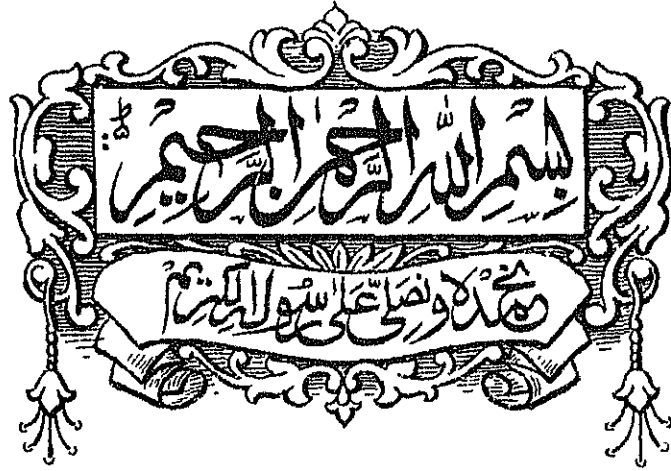 بِسْمِ اللّٰهِ الرَّحْمٰنِ الرَّحِيْمِ
نحمدہ و نصلی علیٰ رسولہ الکریم